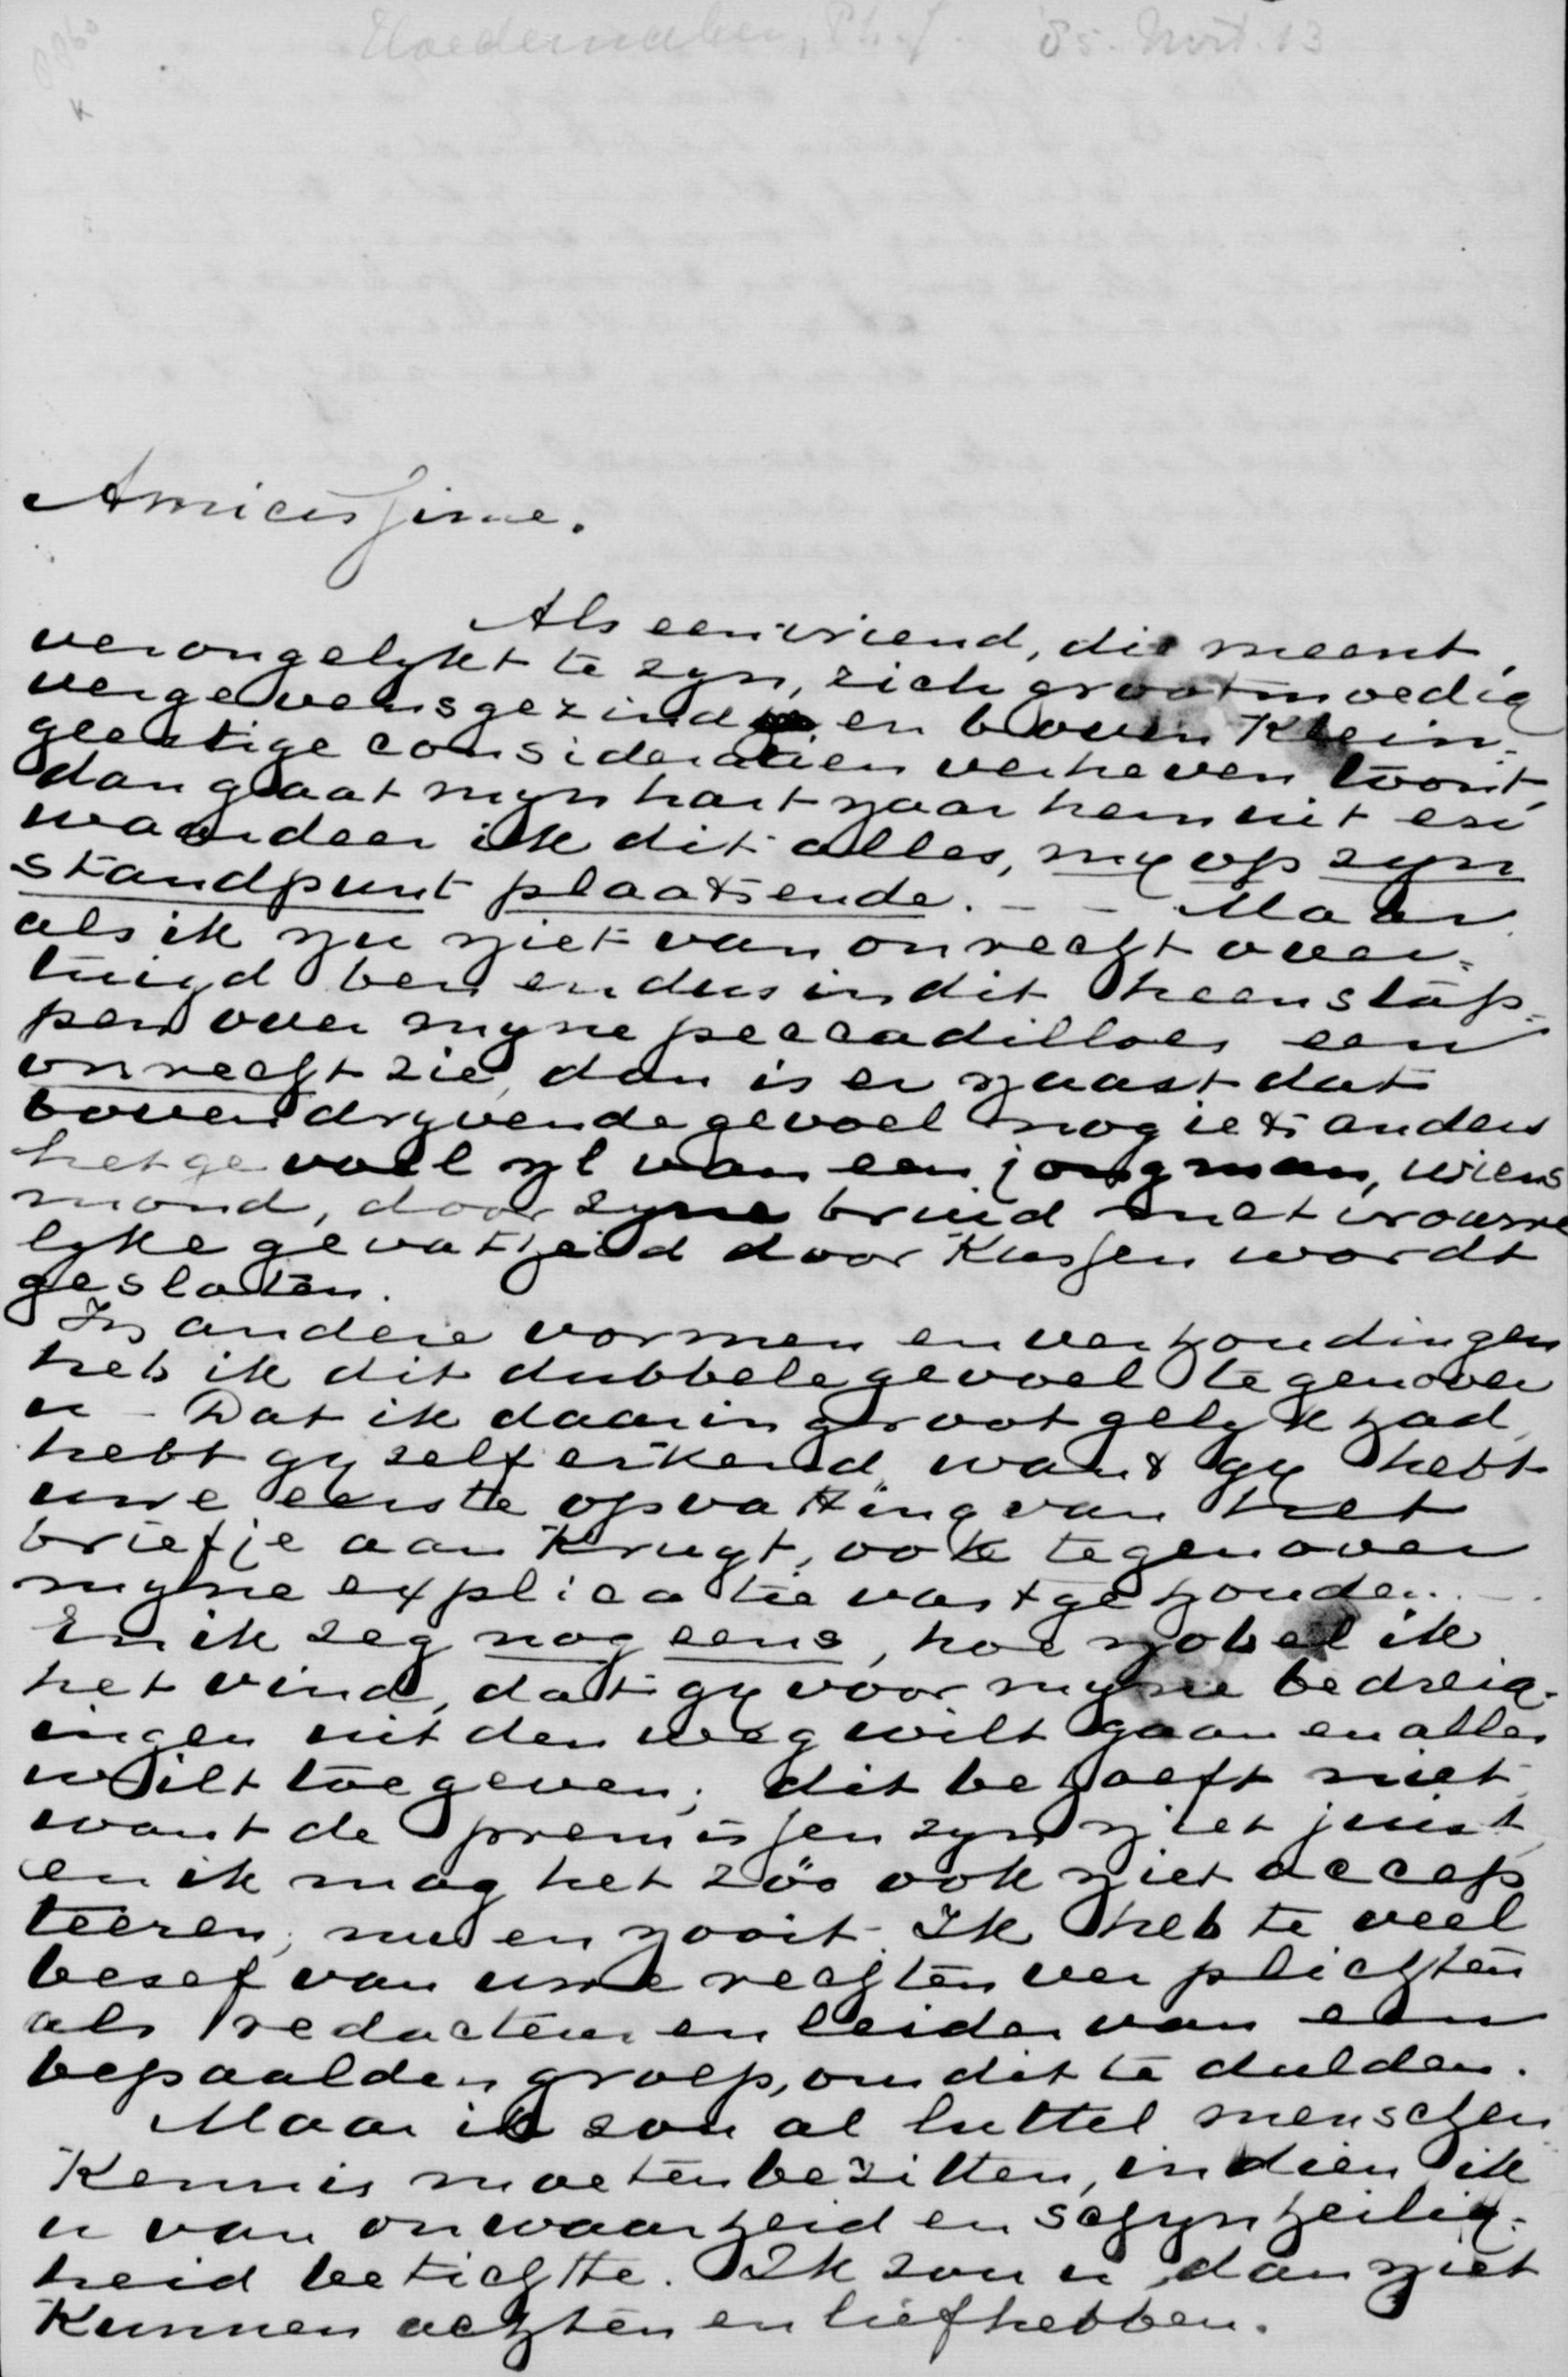 Hoedemaker, Ph. J. 85. Mrt. 13
Amicissime.
Als een vriend, die meent
verongelykt te zyn, zich grootmoedig
vergevensgezind en boven klein-
geestige consideratien verheven toont,
dan gaat myn hart naar hem uit en
waardeer ik dit alles, my op zyn
standpunt plaatsende. - - Maar
als ik nu niet van onrecht over-
tuigd ben en dus in dit heenstap-
pen over myne peccadilloes een
onrecht zie, dan is er naast dat
bovendryvende gevoel nog iets anders
het gevoel nl van een jongman, wiens
mond, door zyne bruid met vrouwe
lyke gevatheid door kussen wordt
gesloten.
In andere vormen en verhoudingen
heb ik dit dubbele gevoel tegenover
u - Dat ik daarin groot gelyk had
hebt gy zelf erkend, want gy hebt
uwe eerste opvatting van het
briefje aan Kruyt, ook tegenover
myne explicatie vastgehouden. -
En ik zeg nog eens, hoe nobel ik
het vind, dat gy voor myne bedreig-
ingen uit den weg wilt gaan en alles
wilt toegeven; dit behoeft niet,
want de premissen zyn niet juist
en ik mag het zóó ook niet accep
teeren, nu en nooit. Ik heb te veel
besef van uwe rechten ver plichten
als redacteur en leider van een
bepaalden groep, om dit te dulden.
Maar ik zou al luttel menschen
kennis moeten bezitten, indien ik
u van onwaarheid en schynheilig-
heid betichtte. Ik zou u dan niet
kunnen achten en liefhebben.